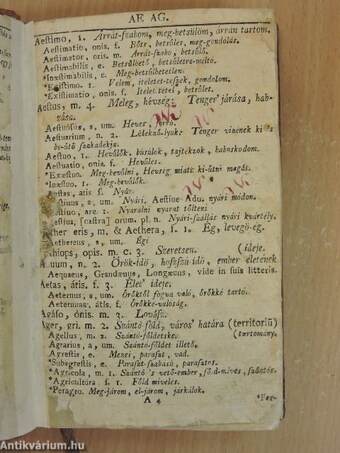 AE AG.
Aestimo, 1. Árrát-szabom, meg-betsüllöm, árrán tartom.
Aestimatio, onis. f. Bötse, betsülés, meg-gondolás.
Aestimator, oris. m. Árrát-szabó, betsülő.
Aestimabilis, e. Betsülhető, betsületre-méltó.
*Inaestimabilis, e. Meg-betsülhetetlen.
*Existimo. 1. Vélem, itéletet-teszek, gondolom.
*Existimatio, onis, f. Itélet-tétel, betsület.
Aestus, m. 4. Meleg, hévség, Tenger' járása, hab-
vása.
Aestuosus, a, um. Heves, forró.
Aestuarium, n. 2. Lélekző-lyuk. Tenger vizének ki 's
be-ütő szakadékja.
Aestuo, 1. Hevülök, búsúlok, tajtékzok, habuskodom.
Aestuatio, onis, f. Hevülés.
*Exaestuo. Meg-hevülni, Hevség miatt ki-ütni magát.
*Inaestuo. 1. Meg-hevülök.
Aestas, atis, f. Nyár.
Aestivus, a, um. Nyári, Aestive Adv. nyári módon.
Aestivo, are. 1. Nyaralni nyarat tölteni.
Aestiva, [castra] orum. pl. n. Nyári-szállás nyári kvártély.
Aether eris, m, & Aethera, f. 1. Ég, levegő-ég.
Aethereus, a, um. Égi
Aethiops, opis, m. c. 3. Szeretsen. (ideje.
Aevum, n. 2. Örök-idő, hoszszú-idő, ember életének
Aequaevus, Grandaevus, Longaevus, vide in suis litteris.
Aetas, átis, f. 3. Élet' ideje.
Aeternus, a, um. Öröktől fogva való, örökké tartó.
Aeternitas, átis, f. Örökké-valóság.
Agáso, ónis, m. 3. Lovász.
Ager, gri, m. 2. Szántó-föld, város' határa (territoriū)
Agellus, m. 2. Szántó-földetske. (tartomány.
Agrarius, a, um. Szántó-földet illető.
Agrestis, e. Mezei, paraszt, vad.
*Subagrestis, e. Paraszt-szabású, parasztos.
*Agricola, m. 1. Szántó 's vető-ember, föld-mives, szántós.
*Agricultúra. f. 1. Föld mivelés.
*Peragro. Meg-járom, el-járom, járkálok.
A 4 *Per-
Antikvárium.hu